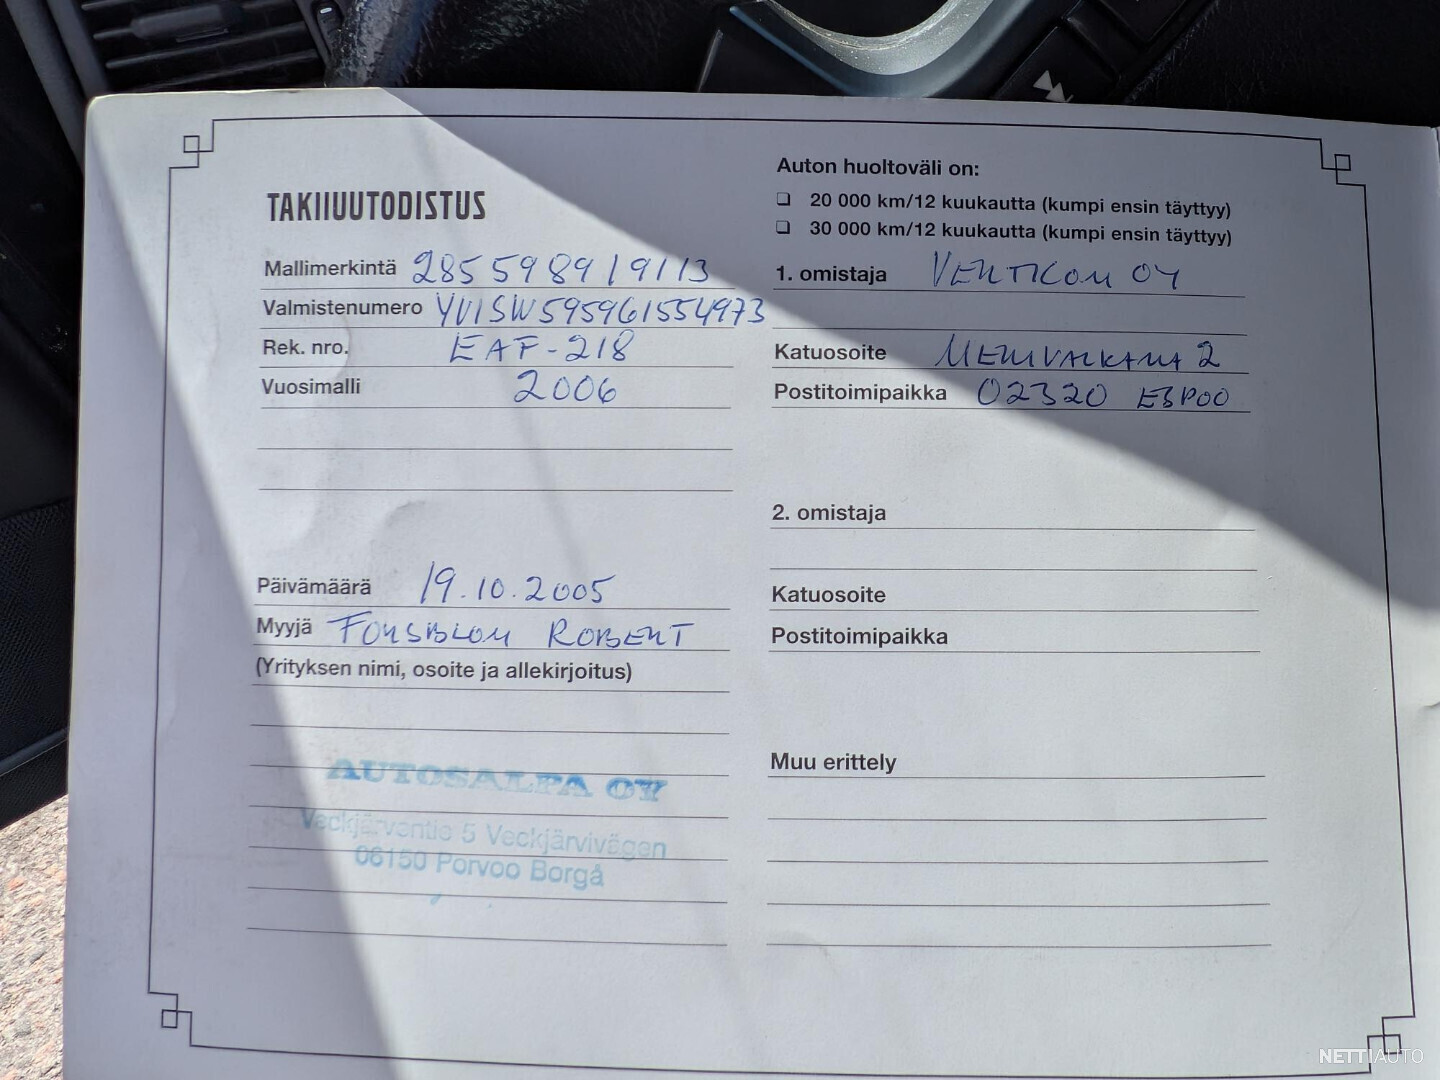 TAKUUUTODISTUS
Mallimerkintä 285 598 89 19113
Valmistenumero YV1SW595961554973
Rek. nro. EAF-218
Vuosimalli 2006
Päivämäärä 19.10.2005
Myyjä FORSBLOM ROBERT
(Yrityksen nimi, osoite ja allekirjoitus)
AUTOSALPA OY
Veckjärventie 5 Veckjärvivägen
06150 Porvoo Borgå
Auton huoltoväli on:
❏ 20 000 km/12 kuukautta (kumpi ensin täyttyy)
❏ 30 000 km/12 kuukautta (kumpi ensin täyttyy)
1. omistaja VERTICOM OY
Katuosoite MERIVALKAMA 2
Postitoimipaikka 02320 ESPOO
2. omistaja
Katuosoite
Postitoimipaikka
Muu erittely
NETTIAUTO